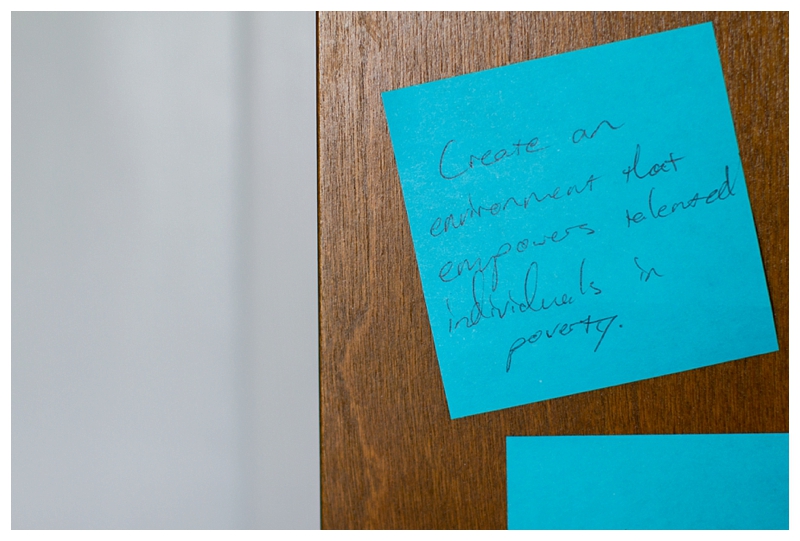 Create an
environment that
empowers talented
individuals in
poverty.